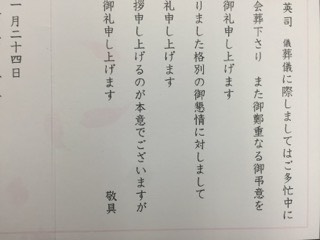 英司　儀葬儀に際しましてはご多忙中に
会葬下さり　また御鄭重なる御弔意を
御礼申し上げます
りました格別の御懇情に対しまして
礼申し上げます
拶申し上げるのが本意でございますが
御礼申し上げます
敬具
一月二十四日